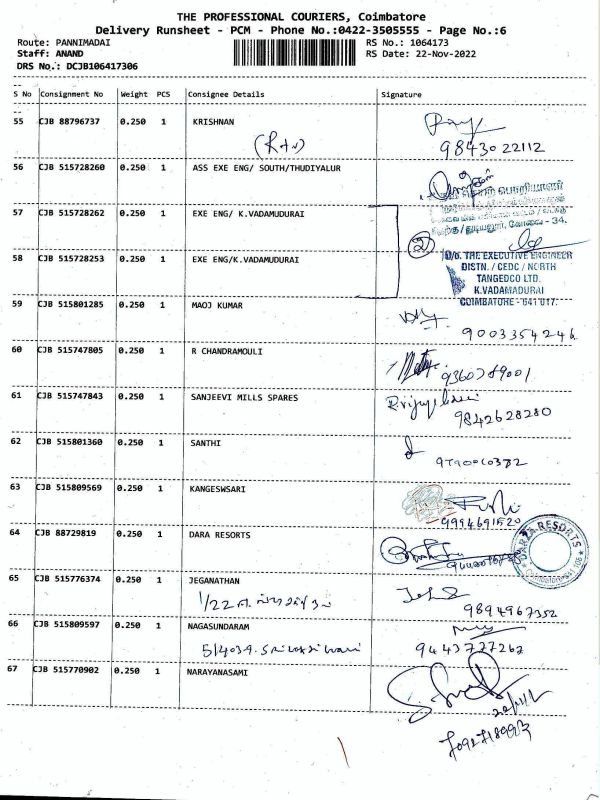 THE PROFESSIONAL COURIERS, Coimbatore
Delivery Runsheet - PCM - Phone No.:0422-3505555 - Page No.:6
Route: PANNIMADAI RS No.: 1064173
Staff: ANAND RS Date: 22-Nov-2022
DRS No.: DCJB106417306
S No Consignment No Weight PCS Consignee Details Signature
55 CJB 88796737 0.250 1 KRISHNAN
(Rtn) 98430 22112
56 CJB 515728260 0.250 1 ASS EXE ENG/ SOUTH/THUDIYALUR
57 CJB 515728262 0.250 1 EXE ENG/ K.VADAMUDURAI
2
58 CJB 515728253 0.250 1 EXE ENG/K.VADAMUDURAI
O/o. THE EXECUTIVE ENGINEER
DISTN. / CEDC / NORTH
TANGEDCO LTD.
K.VADAMADURAI
COIMBATORE - 641 017.
59 CJB 515801285 0.250 1 MAOJ KUMAR
9003354246
60 CJB 515747805 0.250 1 R CHANDRAMOULI
9360789001
61 CJB 515747843 0.250 1 SANJEEVI MILLS SPARES
9842628280
62 CJB 515801360 0.250 1 SANTHI
63 CJB 515809569 0.250 1 KANGESWSARI
9994691520
64 CJB 88729819 0.250 1 DARA RESORTS
65 CJB 515776374 0.250 1 JEGANATHAN
1/22 9894967352
66 CJB 515809597 0.250 1 NAGASUNDARAM
9443777262
67 CJB 515770902 0.250 1 NARAYANASAMI